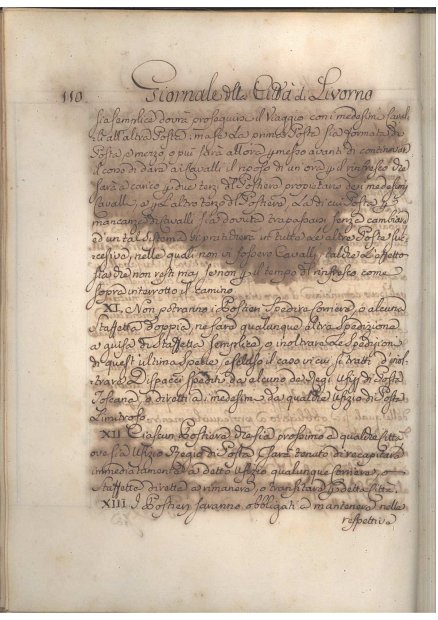 110 Giornale della Città di Livorno
sia semplice dovrà proseguire il Viaggio con i medesimi Caval
li all'altra Posta, ma se la prima Posta sia formata di
Posta e mezzo o più sarà allora permesso avanti di continovar
il corso di dare ai Cavalli il riposo di un ora p il rinfresco che
sarà a carico p due terzi del Postiere proprietario dei medesimi
Cavalli, e p l'altro terzo del Postiere la di cui Posta p
mancanza di Cavalli sia dovuta trapassare senza cambiare
ed un tal sistema si praticherà in tutte le altre Poste suc-
cessive, nelle quali non vi fossero Cavalli, talche la Staffet-
ta che non resti mai se non p il tempo del rinfresco come
sopra interrotto il camino.
XI. Non potranno i Postieri spedire corriere, o alcuna
staffetta doppia, ne fare qualunque altra spedizione
a guisa di Staffetta semplice, o inoltrare le spedizioni
di quest'ultima specie se il caso in cui si tratti d'inol
trare Dispacci spediti da alcuno de Regj Ufizj di Posta
Toscana, o diretti a medesimi da qualche Ufizio di Posta
Limitrofo.
XII. Ciascun Postiere che sia prossimo a qualche Città
ove sia Ufizio Regio di Posta sarà tenuto di recapitare
immediatamente a detto Ufizio qualunque corriere, o
Staffetta diretta a rimanere, o transitare p detta Città.
XIII. I Postieri saranno obbligati a mantenere nelle
respettive